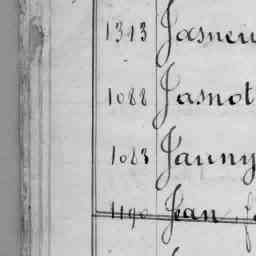 1313 Jasneu
1088 Jasnot
1083 Jauny
1190 Jean